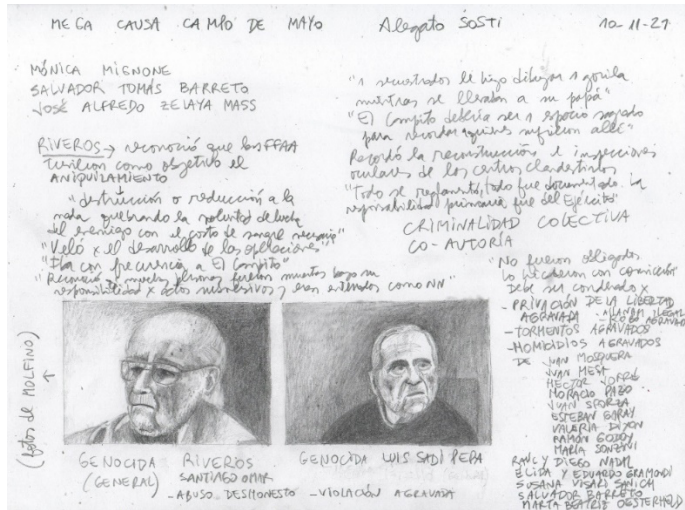 MEGA CAUSA CAMPO DE MAYO Alegato SOSTI 10-11-21
MÓNICA MIGNONE
SALVADOR TOMÁS BARRETO
JOSÉ ALFREDO ZELAYA MASS
RIVEROS → reconoció que las FFAA
tuvieron como objetivo el
ANIQUILAMIENTO
"destrucción o reducción a la
nada quebrando la voluntad de lucha
del enemigo con el costo de sangre necesario"
"Veló x el desarrollo de las operaciones"
"Iba con frecuencia a El Campito"
"Reconoció q muchas personas fueron muertas bajo su
responsabilidad x actos subversivos y eran enterrados como NN"
"1 secuestrador le hizo dibujar 1 gorila
mientras se llevaban a su papá"
"El Campito debería ser 1 espacio sagrado
para recordar quienes sufrieron allí"
Recordó la reconstrucción e inspecciones
oculares de los centros clandestinos
"Todo se reglamentó, todo fue documentado. La
responsabilidad primaria fue del Ejército"
CRIMINALIDAD COLECTIVA
CO-AUTORÍA
"No fueron obligados
lo hicieron con convicción
Debe ser condenado x
- PRIVACIÓN DE LA LIBERTAD
AGRAVADA - ALLANAM ILEGAL
- ROBO AGRAVADO
- TORMENTOS AGRAVADOS
- HOMICIDIOS AGRAVADOS
DE JUAN MOSQUERA
JUAN MESA
HECTOR
HORACIO
JUAN SFORZA
ESTEBAN GARAY
VALERIA DIXON
RAMÓN GODOY
MARÍA
RAUL Y DIEGO NADAL
ELIDA Y EDUARDO GRAMONDI
SUSANA
SALVADOR BARRETO
MARTA BEATRIZ OESTERHELD
(fotos de MOLFINO) →
GENOCIDA RIVEROS
(GENERAL) SANTIAGO OMAR
- ABUSO DESHONESTO - VIOLACIÓN AGRAVADA
GENOCIDA LUIS SADI PEPA